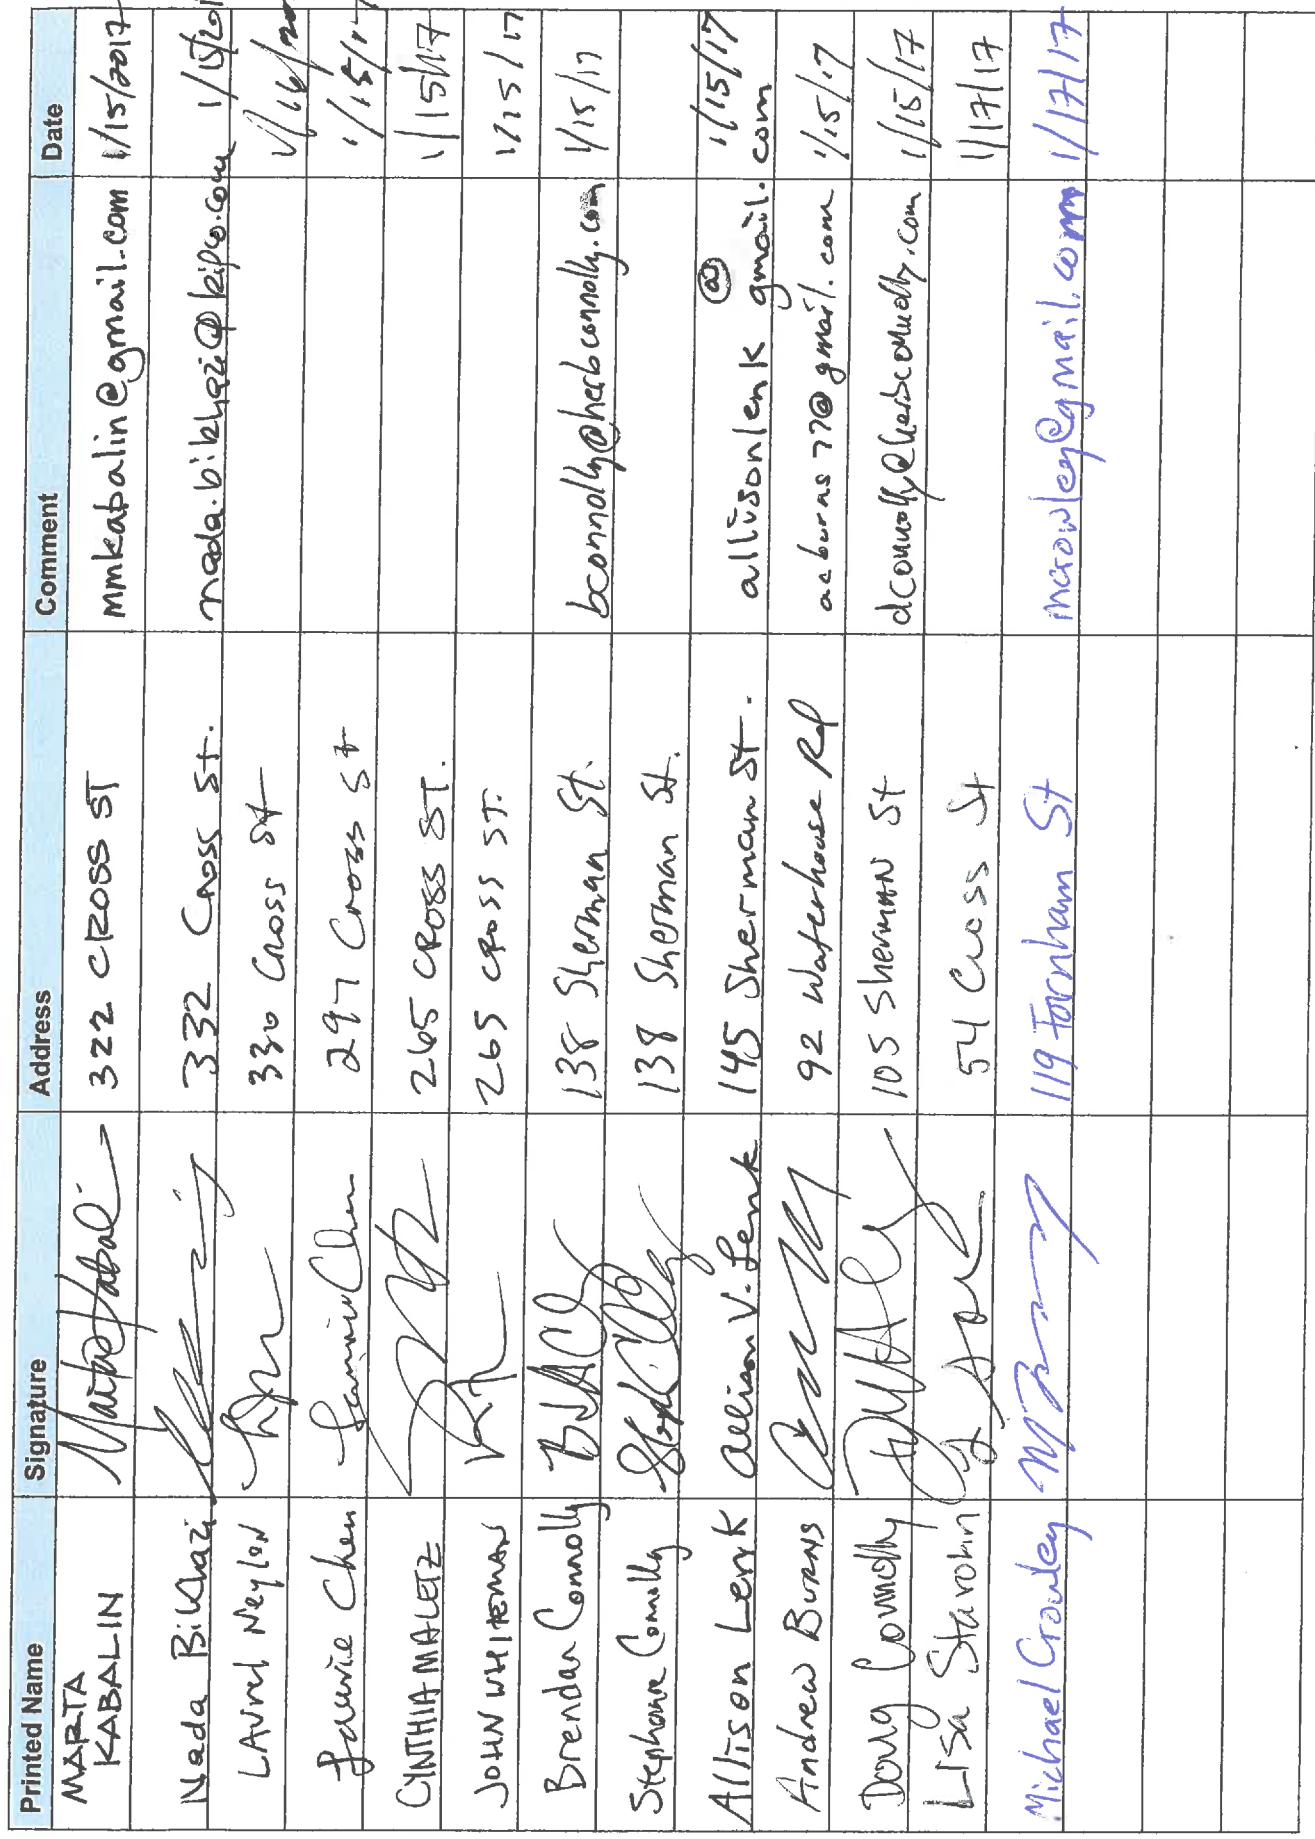 Printed Name Signature Address Comment Date
MARTA
KABALIN 322 CROSS ST mmkabalin@gmail.com 1/15/2017
Nada BiKhazi 332 Cross St. nada.bikhazi@kipco.com 1/15/201
Laurel Neylon 330 Cross St 1/16/20
Laurie Chen Laurie Chen 297 Cross St 1/15/17
CYNTHIA MALETZ 265 CROSS ST. 1/15/17
JOHN WHITEMAN 265 CROSS ST. 1/15/17
Brendan Connolly 138 Sherman St. bconnolly@herbconnolly.com 1/15/17
Stephanie Connolly 138 Sherman St.
Allison Lenk Allison V. Lenk 145 Sherman St. allisonlenk @ gmail.com 1/15/17
Andrew Burns 92 Waterhouse Rd acburns77@gmail.com 1/15/17
Doug Connolly 105 Sherman St dconnolly@herbconnolly.com 1/15/17
Lisa Starokin 54 Cross St 1/17/17
Michael Crowley 119 Farnham St mcrowley@gmail.com 1/17/17